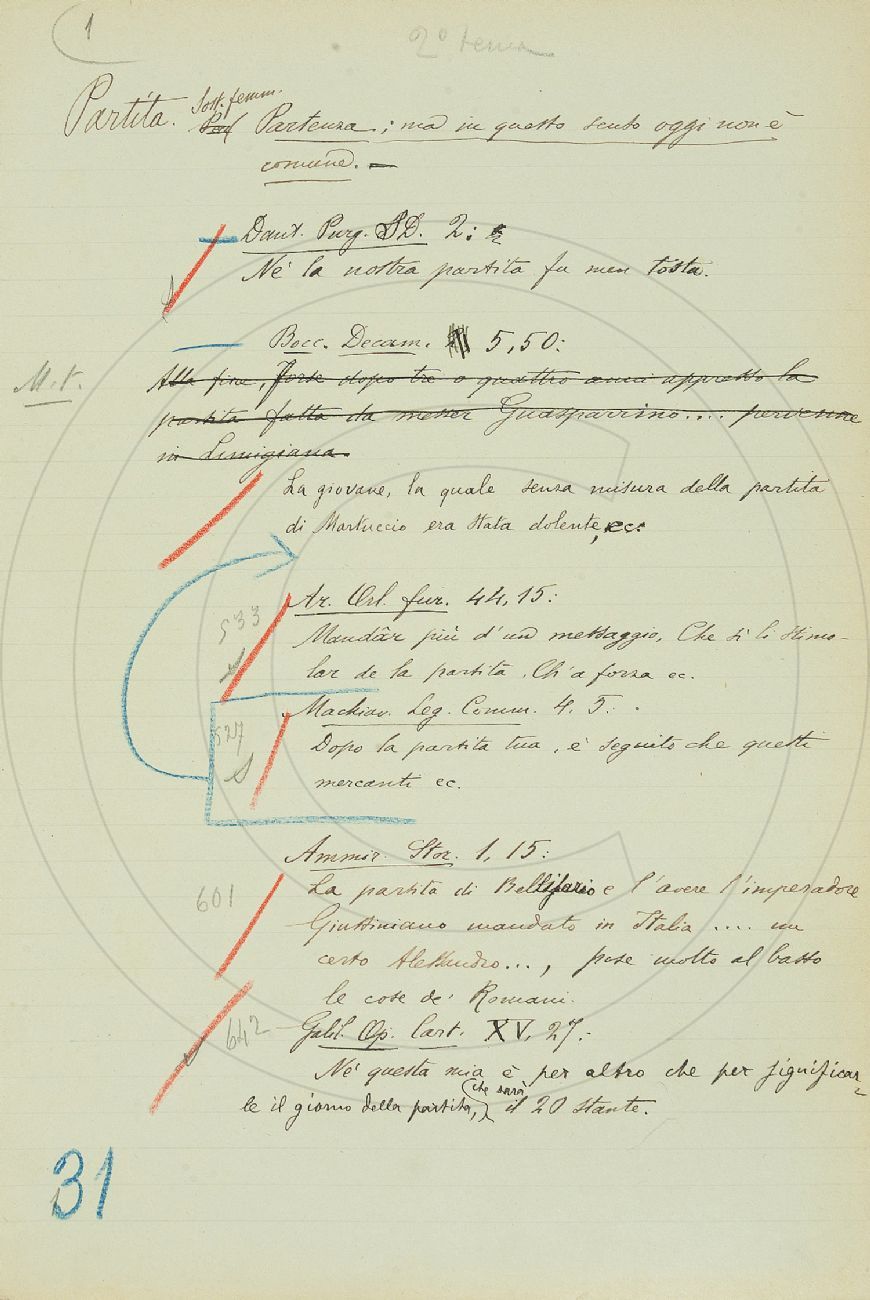 1
2º tema
Partita. Sost. femm. Partenza; ma in questo senso oggi non è
comune. —
Dant. Purg. 2:
Né la nostra partita fu men tosta.
Bocc. Decam. 5,50:
M.t.
Alla fine, Forse dopo tre o quattro anni appresso la
partita fatta da messer Guasparrino.... pervenne
in Lunigiana.
La giovane, la quale senza misura della partita
di Martuccio era stata dolente, ec.
533
Ar. Orl. fur. 44,15:
Mandâr più d'un messaggio, Che sì li stimo-
lar de la partita, Ch'a forza ec.
Machiav. Leg. Comm. 4. 5:
527
Dopo la partita tua, è seguito che questi
mercanti ec.
Ammir. Stor. 1, 15:
601
La partita di Bellisario e l'avere l'imperadore
Giustiniano mandato in Italia .... un
certo Alessandro..., pose molto al basso
le cose de' Romani.
642
Galil. Op. lett. XV, 27:
Né questa mia è per altro che per significar-
le il giorno della partita, che sarà il 20 stante.
31